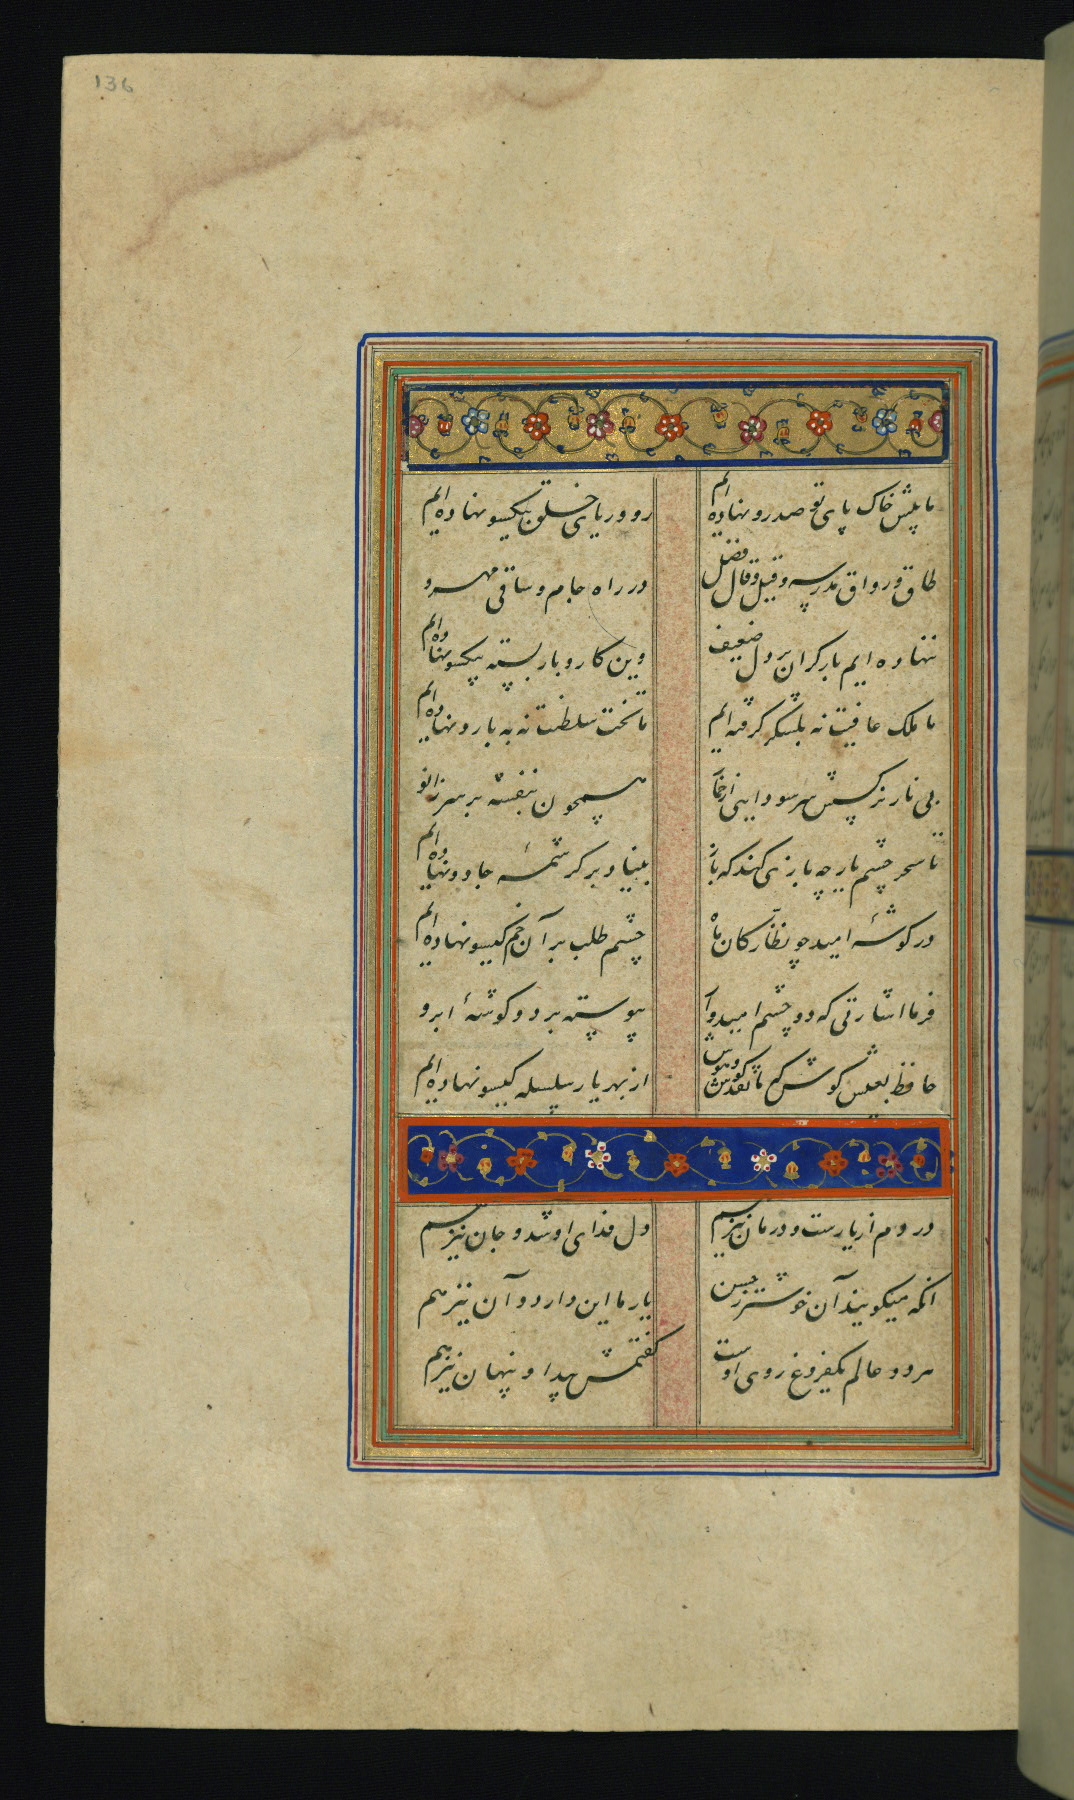 136
ما پیش خاک پای تو صد رو نهاده ایم
رو و ریای خلق بیکسو نهاده ایم
طاق و رواق مدرسه و قیل و قال فضل
در راه جام و ساقی مهرو
ننهاده ایم بار کران بر دل ضعیف
وین کار و بار بسته بیکسو نهاده ایم
ما ملک عافیت نه بلشکر کرفته ایم
ما تخت سلطنت نه به بازو نهاده ایم
بی ناز نرکسش سر سودایی از خمار
همچون بنفشه بر سر زانو
تا سحر چشم یار چه بازی کند که باز
بنیاد بر کرشمه جادو نهاده ایم
در کوشهٔ امید چو نظارکان ماه
چشم طلب بر آن خم کیسو نهاده ایم
فرما اشارتی که دو چشم امیدوار
پیوسته بر دو کوشهٔ ابرو
حافظ بعیش کوش که ما نقد عقل و هوش
از بهر یار سلسله کیسو نهاده ایم
دردم از یارست و درمان نیز هم
دل فدای او شد و جان نیز هم
انکه میکویند آن خوشتر ز حسن
یار ما این دارد و آن نیز هم
هر دو عالم یکفروغ روی اوست
کفتمش پیدا و پنهان نیز هم